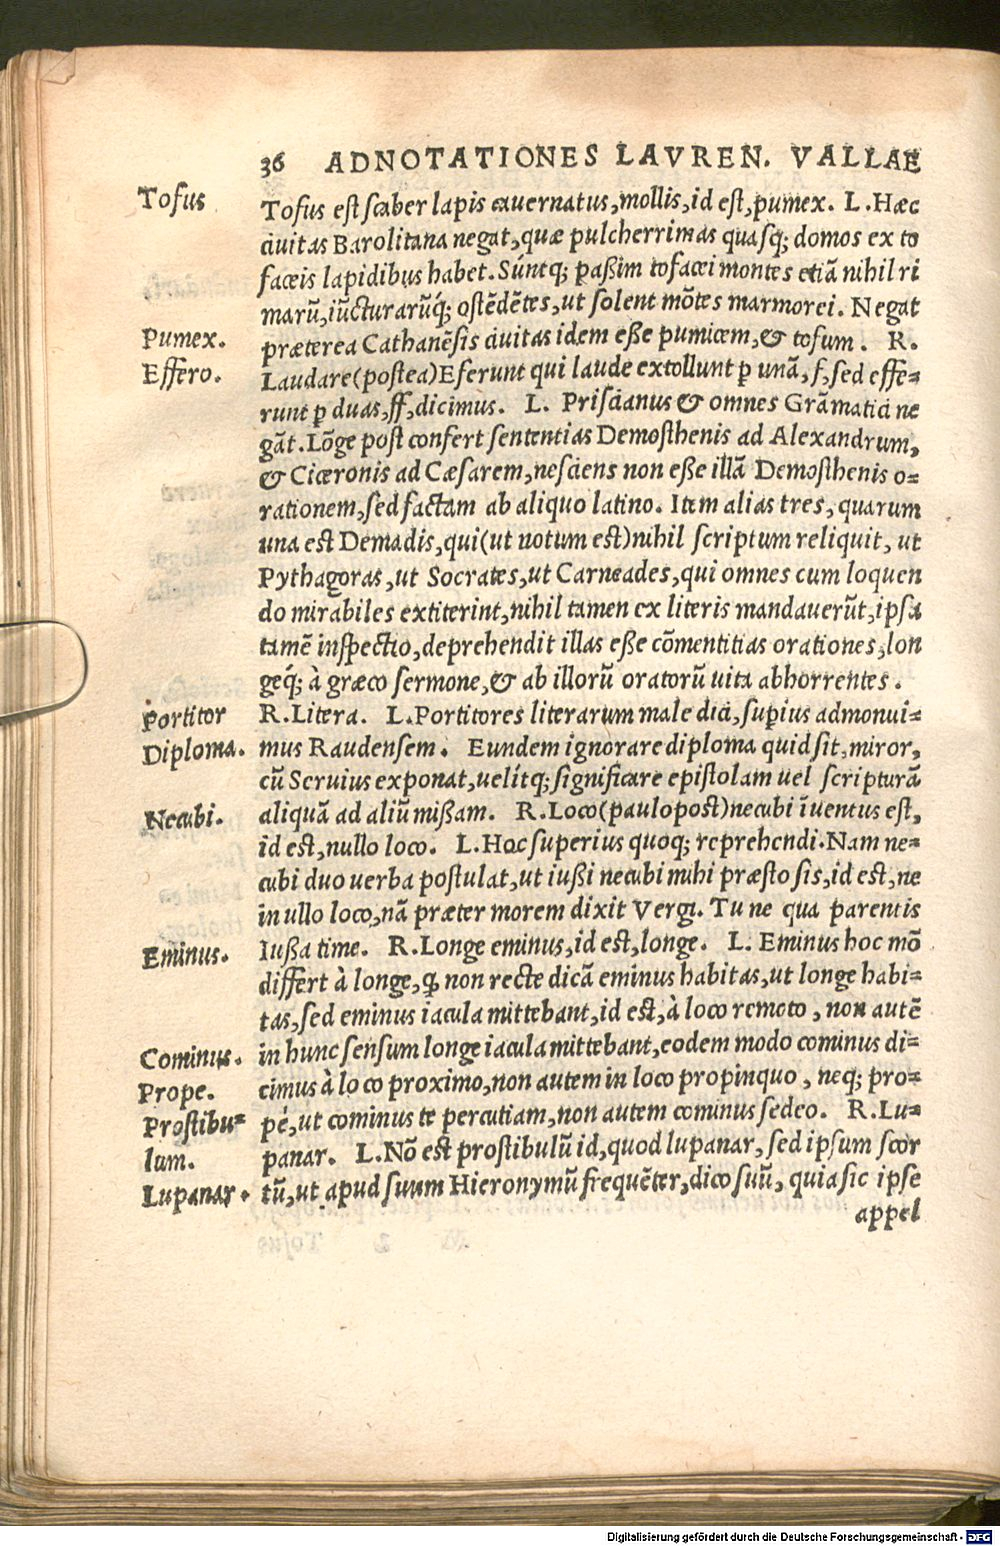 36 ADNOTATIONES LAVREN. VALLAE
Tofus
Tofus est scaber lapis cauernatus, mollis, id est, pumex. L. Hæc
ciuitas Barolitana negat, quæ pulcherrimas quasq; domos ex to
faceis lapidibus habet. Súntq; paßim tofacei montes etiã nihil ri
marũ, iũcturarũq́; ostẽdẽtes, ut solent mõtes marmorei. Negat
Pumex.
præterea Cathanẽsis ciuitas idem eße pumicem, & tofum. R.
Effero.
Laudare (postea) Eferunt qui laude extollunt p̱ unã, f, sed effe=
runt p̱ duas, ff, dicimus. L. Priscianus & omnes Grãmatici ne
gãt. Lõge post confert sententias Demosthenis ad Alexandrum,
& Ciceronis ad Cæsarem, nesciens non eße illã Demosthenis o=
rationem, sed factam ab aliquo latino. Item alias tres, quarum
una est Demadis, qui (ut notum est) nihil scriptum reliquit, ut
Pythagoras, ut Socrates, ut Carneades, qui omnes cum loquen
do mirabiles extiterint, nihil tamen ex literis mandauerũt, ipsa
tamẽ inspectio, deprehendit illas eße cõmentitias orationes, lon
geq́; à græco sermone, & ab illorũ oratorũ uita abhorrentes.
Portitor
R. Litera. L. Portitores literarum male dici, sup̱ius admonui=
Diploma.
mus Raudensem. Eundem ignorare diploma quid sit, miror,
cũ Seruius exponat, uelítq; significare epistolam uel scripturã
Necubi.
aliquã ad aliũ mißam. R. Loco (paulo post) necubi ĩuentus est,
id est, nullo loco. L. Hoc superius quoq; reprehendi. Nam ne=
cubi duo uerba postulat, ut iußi necubi mihi præsto sis, id est, ne
in ullo loco, nã præter morem dixit Vergi. Tu ne qua parentis
Eminus.
Iußa time. R. Longe eminus, id est, longe. L. Eminus hoc mõ
differt à longe, ꝙ non recte dicã eminus habitas, ut longe habi=
tas, sed eminus iacula mittebant, id est, à loco remoto, non autẽ
Cominus.
in hunc sensum longe iacula mittebant, eodem modo cominus di=
Prope.
cimus à loco proximo, non autem in loco propinquo, neq; pro=
Prostibu=
pé, ut cominus te percutiam, non autem cominus sedeo. R. Lu=
lum.
panar. L. Nõ est prostibulũ id, quod lupanar, sed ipsum scor
Lupanar.
tũ, ut apud suum Hieronymũ frequẽter, dico suũ, quia sic ipse
appel
Digitalisierung gefördert durch die Deutsche Forschungsgemeinschaft - DFG